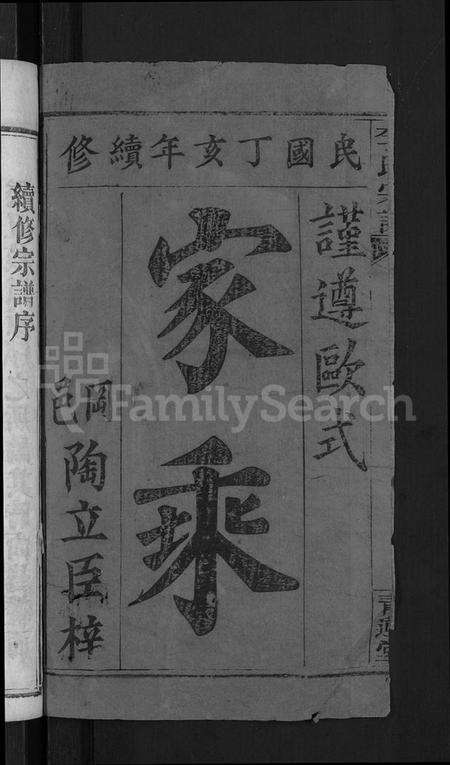 民國丁亥年續修
謹遵歐式
家乘
邑岡陶立臣梓
續修宗譜序
FamilySearch